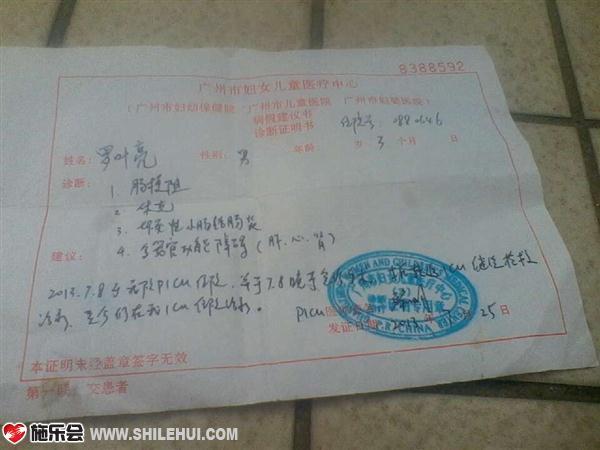 8388592
广州市妇女儿童医疗中心
(广州市妇幼保健院 广州市儿童医院 广州市妇婴医院)
病假建议书
诊断证明书 住院号: 0880646
姓名: 罗叶亮 性别: 男 年龄 岁 3 个月 日
诊断: 1. 肠梗阻
2. 休克
3. 坏死性小肠结肠炎
4. 多器官功能障碍 (肝、心、肾)
建议:
2013.7.8 PICU 7.8晚 急诊 手术 ICU 继续抢救
治疗, 至今仍在我ICU 治疗.
PICU 医师签名
发证日期 2013 年 7 月 25 日
WOMEN AND CHILDREN'S MEDICAL CENTER
P.R.CHINA
本证明未经盖章签字无效
第一联 交患者
施乐会 WWW.SHILEHUI.COM